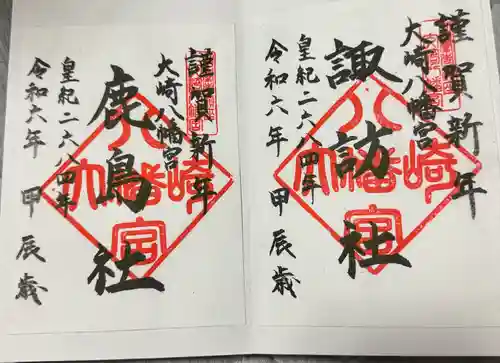 謹賀新年
大崎八幡宮
諏訪社
皇紀二六八四年
令和六年 甲辰歳
八幡宮
大崎
謹賀新年
大崎八幡宮
鹿島社
皇紀二六八四年
令和六年 甲辰歳
八幡宮
大崎